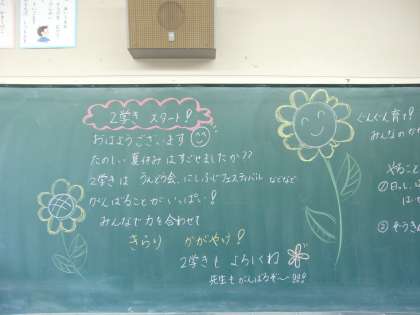 2学き スタート!
おはようございます
たのしい 夏休み はすごせましたか??
2学きは うんどう会、にしふじフェスティバル などなど
がんばることがいっぱい!
みんなで力を合わせて
きらり かがやけ!
2学きも よろしくね
先生もがんばるぞ〜!!!
ぐんぐん育て!
みんなのか
やること
①日
②そうき